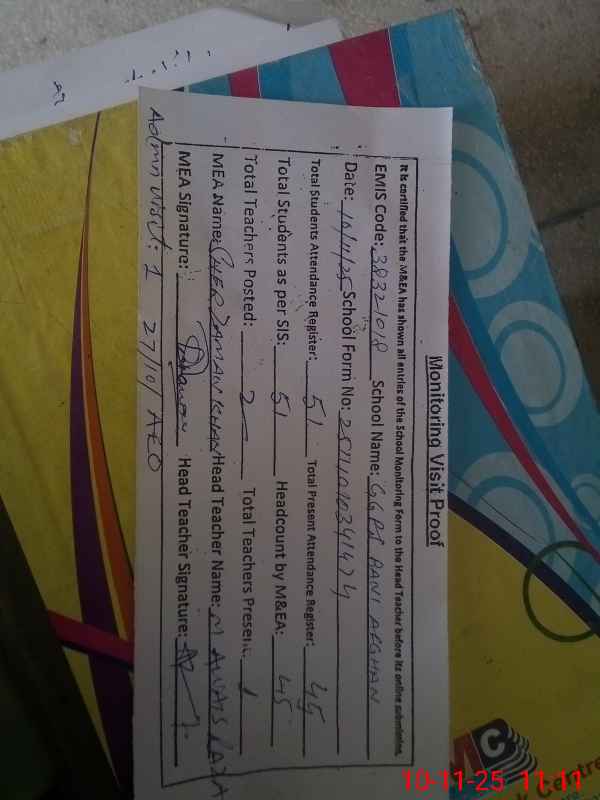 Monitoring Visit Proof
It is certified that the M&EA has shown all entries of the School Monitoring Form to the Head Teacher before its online submission.
EMIS Code: 38321018 School Name: GGPS BANI AFGHAN
Date: 10/11/25 School Form No:
Total Students Attendance Register: 51 Total Present Attendance Register: 45
Total Students as per SIS: 51 Headcount by M&EA: 45
Total Teachers Posted: 2 Total Teachers Present: 1
MEA Name: SHER ZAMAN KHAN Head Teacher Name: M AWAIS RAZA
MEA Signature: Head Teacher Signature:
Admn Visit: 1 27/10/ AEO
MC
Centre
10-11-25 11:11